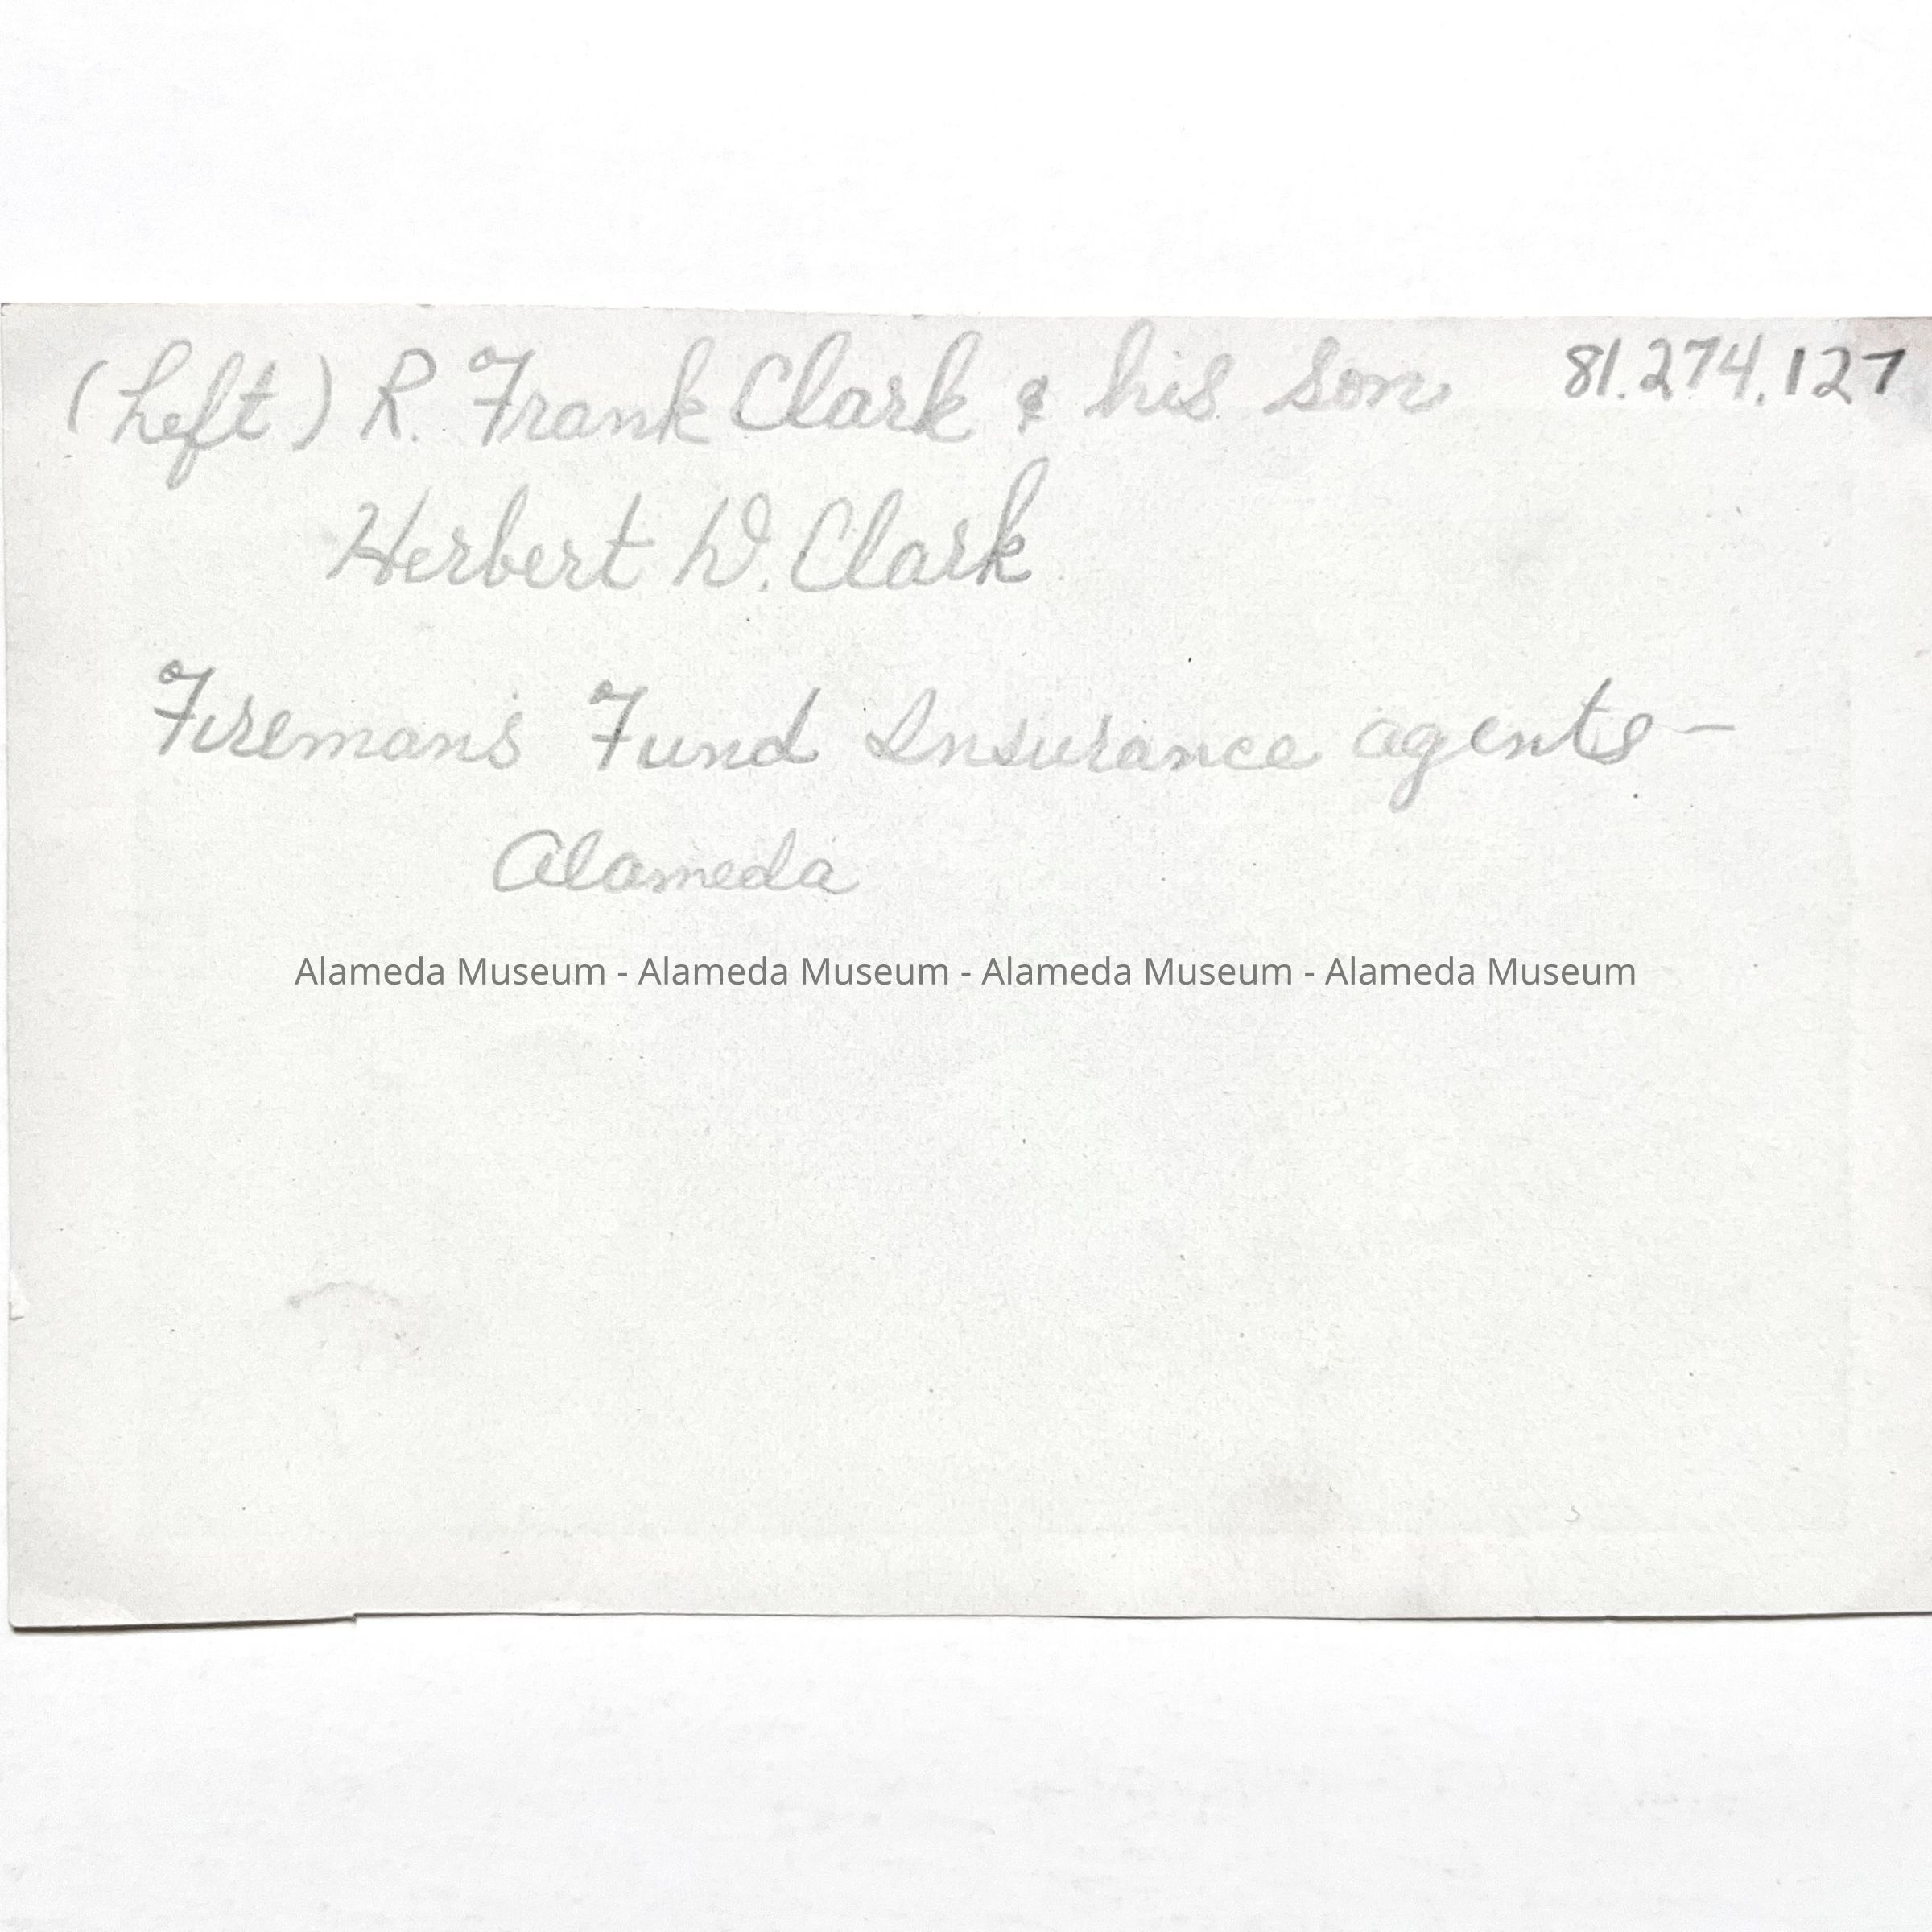 (Left) R. Frank Clark & his son 81.274.127
Herbert W. Clark
Fireman's Fund Insurance agents—
Alameda
Alameda Museum - Alameda Museum - Alameda Museum - Alameda Museum